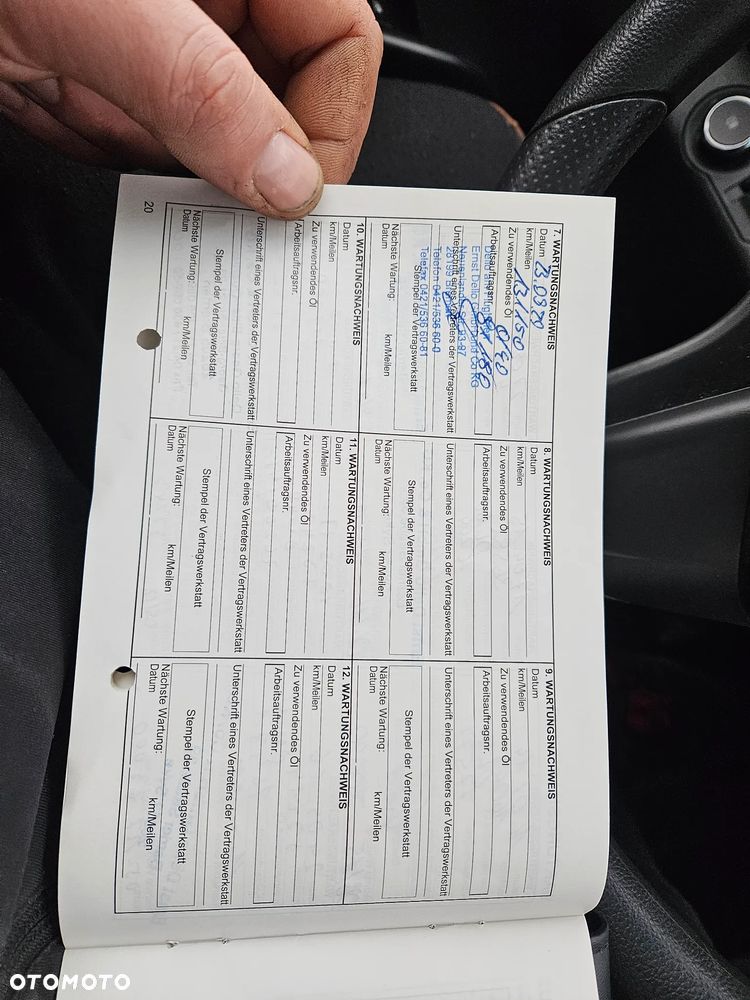 7. WARTUNGSNACHWEIS
Datum 23.09.20
km/Meilen 131150
Zu verwendendes Öl 0W30
Arbeitsauftragsnr.
Unterschrift eines Vertreters der Vertragswerkstatt
Ernst Dello
28195
Telefon 0421/536 60-0
Telefax 0421/536 60-81
Stempel der Vertragswerkstatt
Nächste Wartung:
Datum km/Meilen
8. WARTUNGSNACHWEIS
Datum
km/Meilen
Zu verwendendes Öl
Arbeitsauftragsnr.
Unterschrift eines Vertreters der Vertragswerkstatt
Stempel der Vertragswerkstatt
Nächste Wartung:
Datum km/Meilen
9. WARTUNGSNACHWEIS
Datum
km/Meilen
Zu verwendendes Öl
Arbeitsauftragsnr.
Unterschrift eines Vertreters der Vertragswerkstatt
Stempel der Vertragswerkstatt
Nächste Wartung:
Datum km/Meilen
10. WARTUNGSNACHWEIS
Datum
km/Meilen
Zu verwendendes Öl
Arbeitsauftragsnr.
Unterschrift eines Vertreters der Vertragswerkstatt
Stempel der Vertragswerkstatt
Nächste Wartung:
Datum km/Meilen
11. WARTUNGSNACHWEIS
Datum
km/Meilen
Zu verwendendes Öl
Arbeitsauftragsnr.
Unterschrift eines Vertreters der Vertragswerkstatt
Stempel der Vertragswerkstatt
Nächste Wartung:
Datum km/Meilen
12. WARTUNGSNACHWEIS
Datum
km/Meilen
Zu verwendendes Öl
Arbeitsauftragsnr.
Unterschrift eines Vertreters der Vertragswerkstatt
Stempel der Vertragswerkstatt
Nächste Wartung:
Datum km/Meilen
20
OTOMOTO